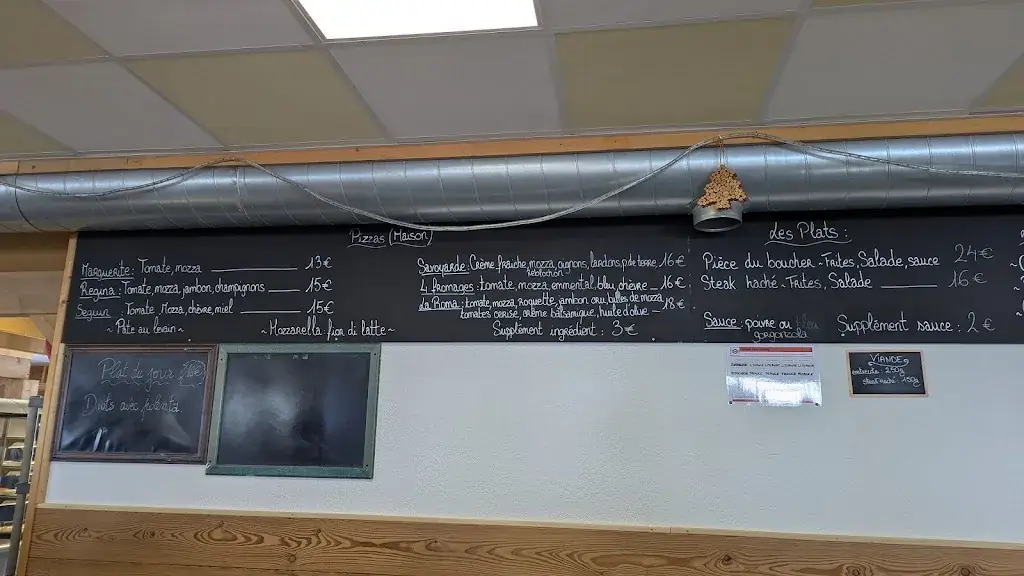 Pizzas (Maison)
Marguerite: Tomate, mozza 13€
Regina: Tomate, mozza, jambon, champignons 15€
Seguin: Tomate Mozza, chèvre, miel 15€
~ Pâte au levain ~
~ Mozzarella fior di latte ~
Savoyarde: Crème fraiche, mozza, oignons, lardons, p.de terre, 16€
Reblochon
4 Fromages: tomate, mozza, emmental, bleu, chèvre 16€
La Roma: tomate, mozza, roquette, jambon cru, billes de mozza,
tomates cerise, crème balsamique, huile d'olive 18€
Supplément ingrédient: 3€
Les Plats:
Pièce du boucher - Frites, Salade, sauce 24€
Steak haché - Frites, Salade 16€
Sauce: poivre ou bleu
gorgonzola
Supplément sauce: 2€
Plat du jour
Diots avec polenta.
VIANDE
entrecôte: 250g
steak haché: 150g